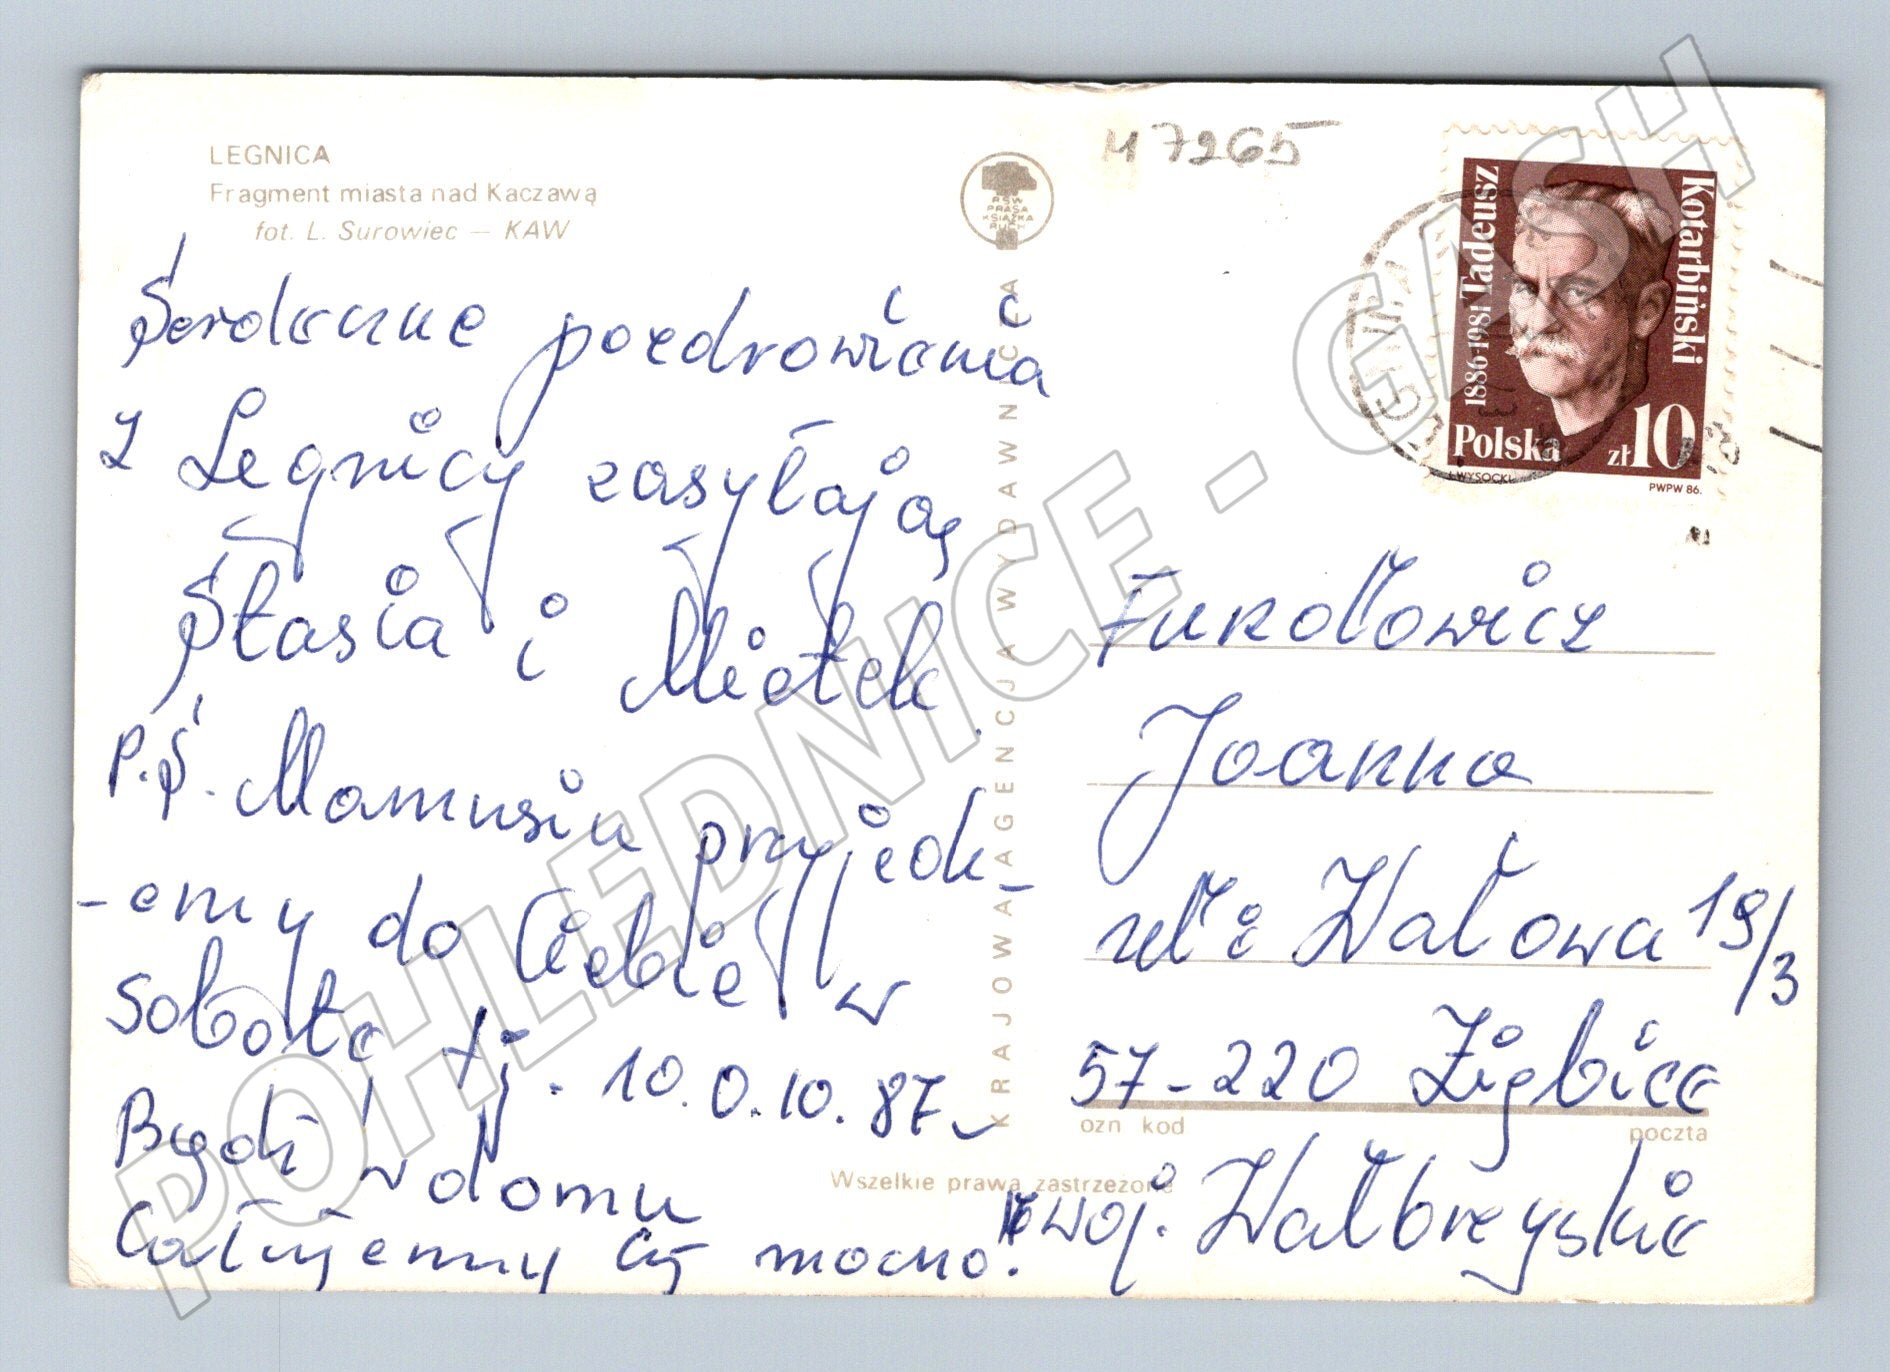 LEGNICA
Fragment miasta nad Kaczawą
fot. L. Surowiec — KAW
Serdeczne pozdrowienia
z Legnicy zasyłają
Stasia i Mietek.
P.S. Mamusiu przyjedzi-
-emy do Ciebie w
sobotę tj. 10.0.10.87
Bądź w domu
Całujemy Cię mocno.
RSW
PRASA
KSIĄŻKA
RUCH
KRAJOWA AGENCJA WYDAWNICZA
Wszelkie prawa zastrzeżone
M 7265
1886-1981 Tadeusz
Kotarbiński
Polska zł 10
Ł.WYSOCKI
PWPW 86.
LEGNICA
Joanna
ul: Wałowa 19/3
57-220 Ziębice
ozn kod
poczta
woj. Wałbrzyskie
POHLEDNICE - GASH